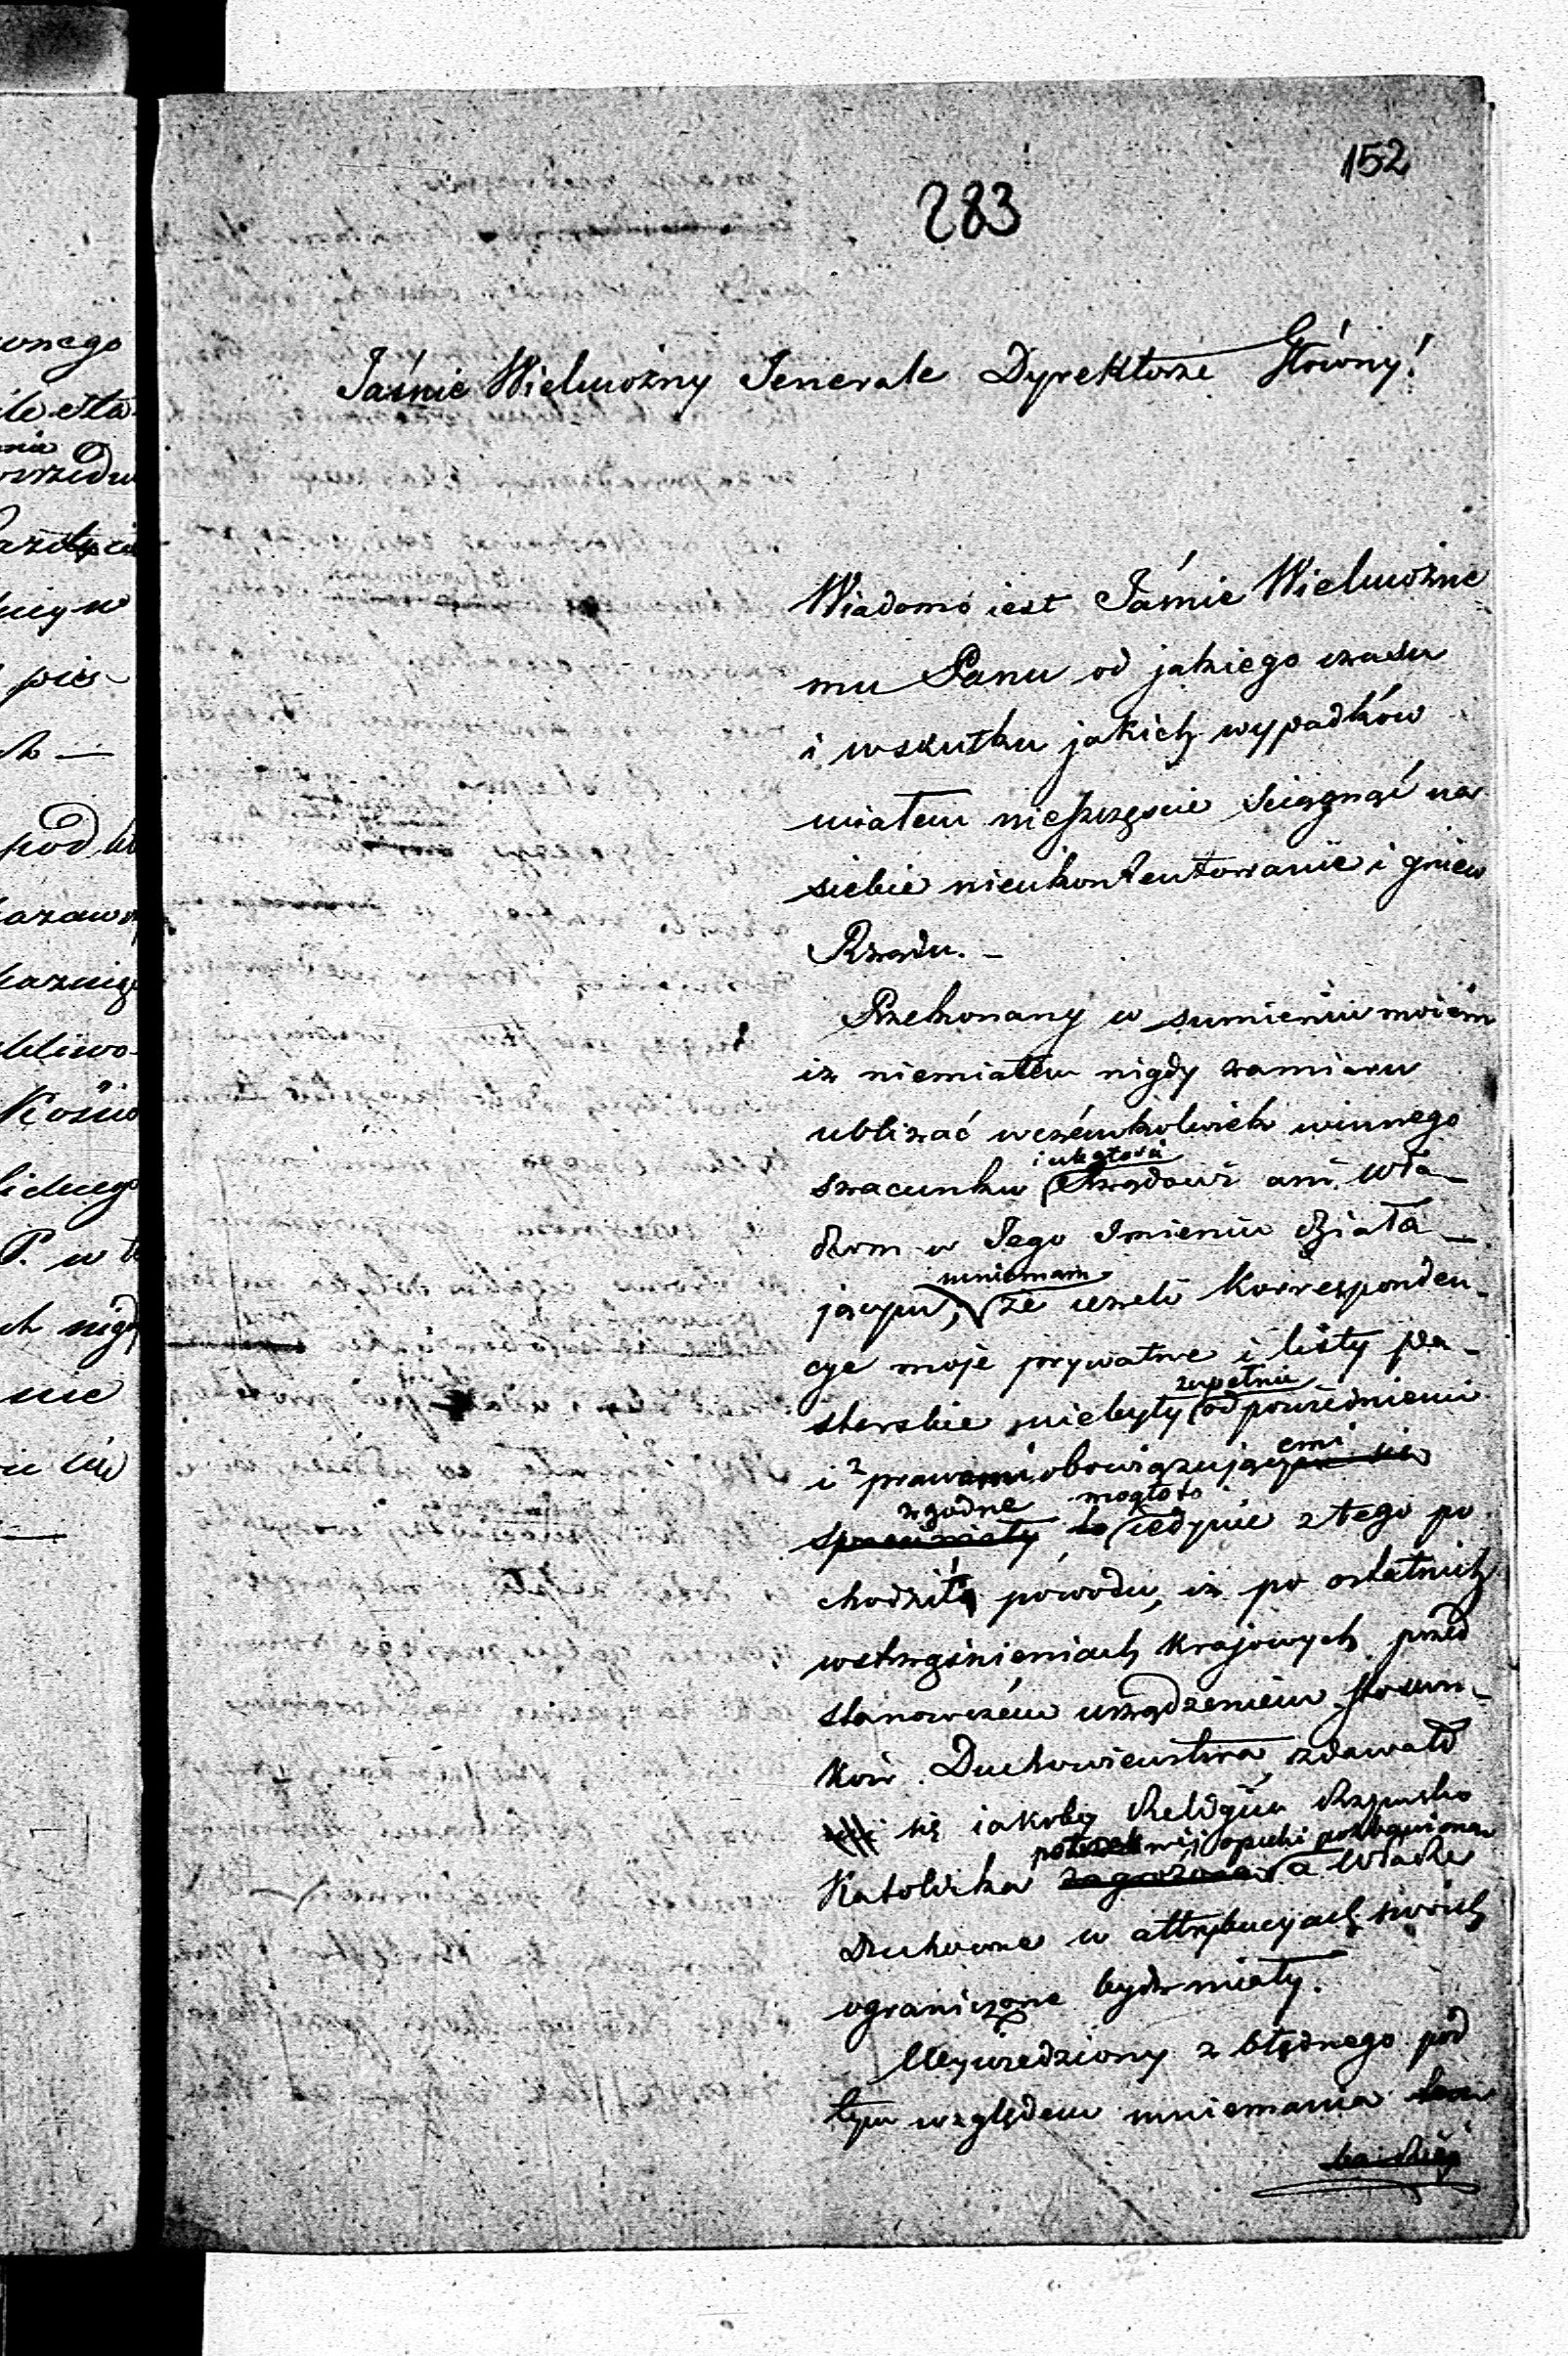 152
283
Jaśnie Wielmożny Jenerale Dyrektorze Główny!
Wiadomo iest Jaśnie Wielmożne
mu Panu od jakiego czasu
i wskutku jakich wypadków
miałem nieszczęście ściągnąć na
siebie nieukontentowanie i gniew
Rządu. –
Przekonany w sumieniu moiém
iż niemiałem nigdy zamiaru
ubliżać wczémkolwiek winnego
i uległości
szacunku Rządowi ani Wła-
dzom w Jego Imieniu działa-
mniemam
jącym, że ieżeli Korresponden-
cye moje prywatne i listy pa-
zupełnie
sterskie niebyły odpowiedniemi
emi
i z prawami obowiązującymi się
zgodne mogło to
sprzeciwiały to iedynie z tego po
chodziło powodu, iż po ostatnich
wstrząśnieniach Krajowych przed
stanowczém urządzeniem stosun-
ków Duchowieństwa zdawało
się iakoby Religia Rzymsko
potrzebnéj opieki pozbawiona
Katolicka zagrożona a Władze
Duchowne w attrybucyach swoich
ograniczone bydź miały.
Wywiedziony z błędnego pod
tym względem mniemania